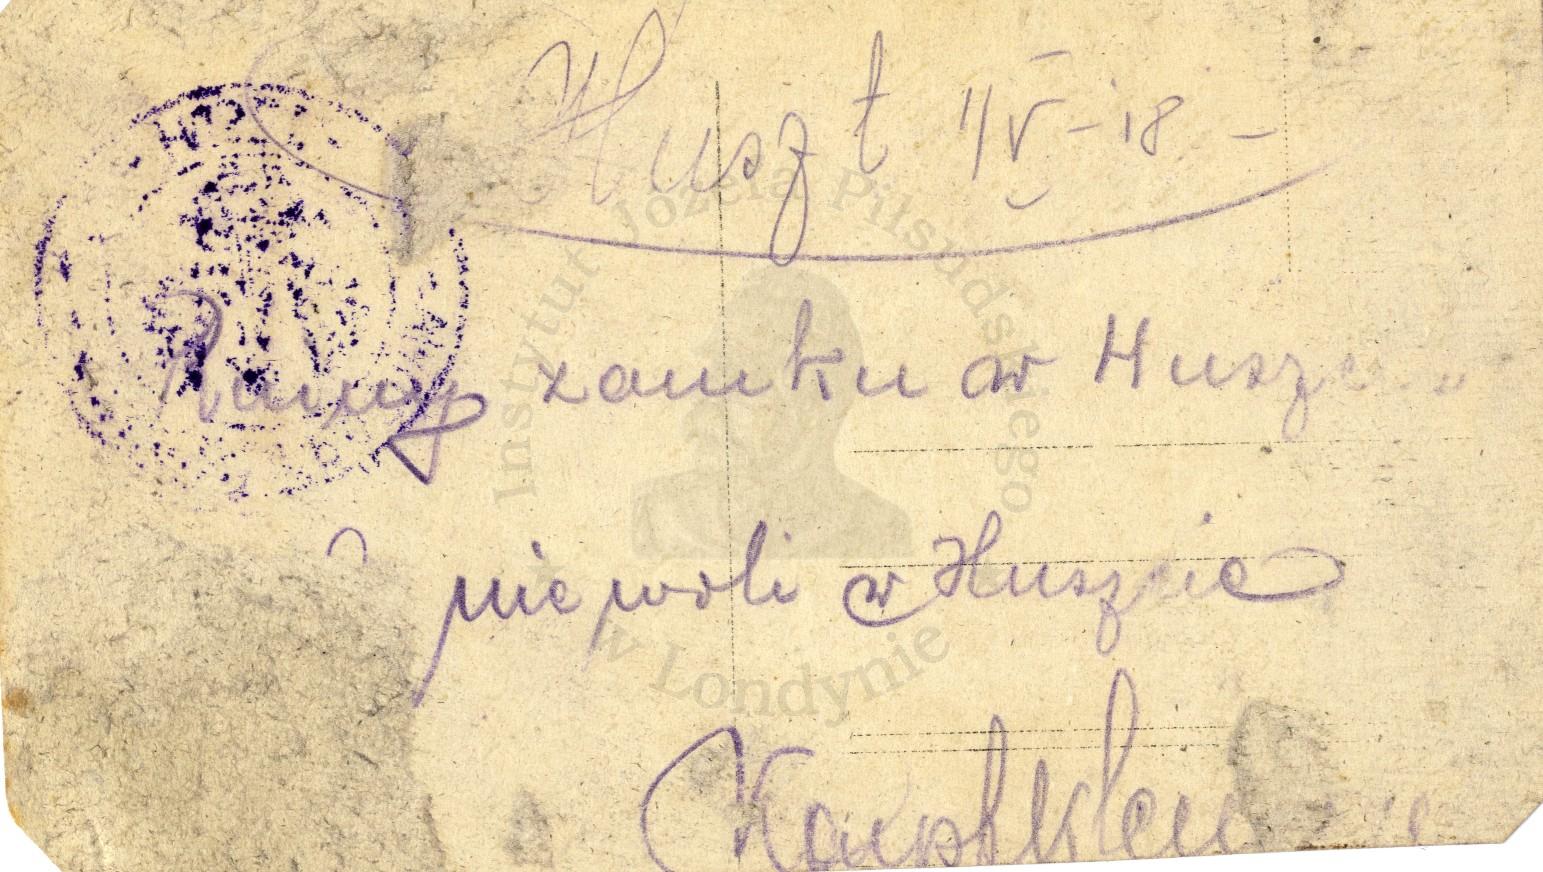 Huszt 11/V-18-
Ruiny zamku w Huszcie
niewoli w Huszcie
Instytut Józefa Piłsudskiego
w Londynie